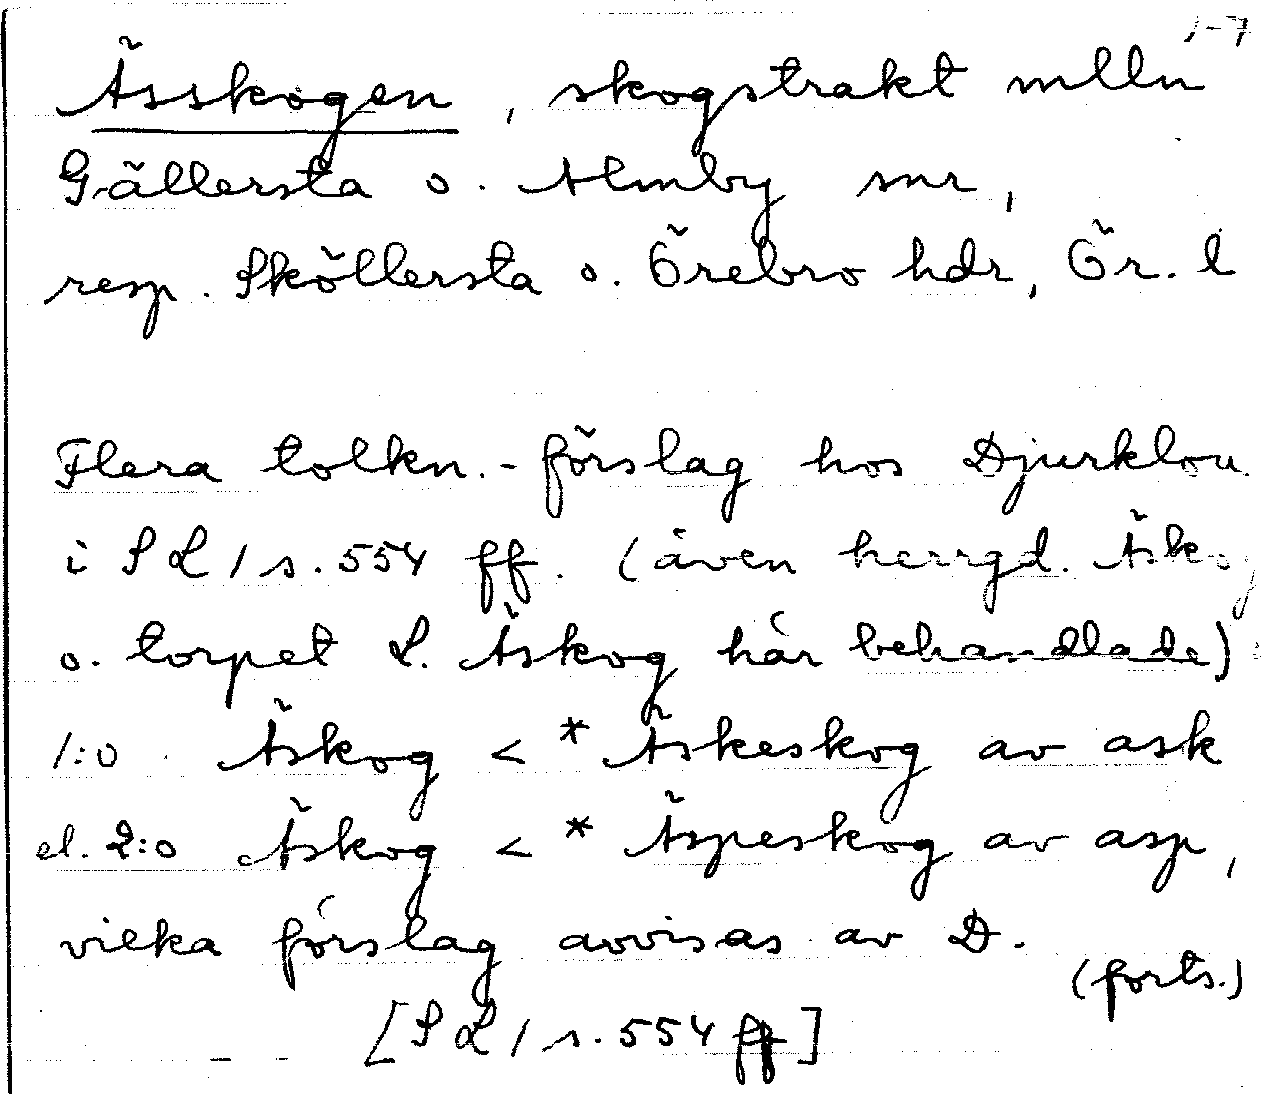 1-7
Ässkogen, skogstrakt mlln
Gällersta o. Almby snr,
resp. Sköllersta o. Örebro hdr, Ör. l
Flera tolkn.-förslag hos Djurklou
i SL 1 s. 554 ff. (även herrgd. Äskog
o. torpet L. Äskog här behandlade)
1:o Äskog < * Äskeskog av ask
el. 2:o Äskog < * Äspeskog av asp,
vilka förslag avvisas av D.
(forts.)
[SL 1 s. 554 ff]